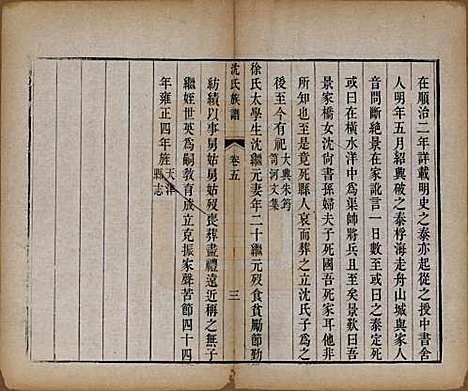 在順治二年詳載明史之泰亦起從之授中書舍
人明年五月紹興破之泰桴海走舟山城與家人
音問斷絶景在家訛言一日數百或曰之泰定死
或曰在橫水洋中為渠帥將兵且至矣景歎曰吾
景家橋女沈尙書孫婦夫子死國吾死家耳他非
所知也至是竟死縣人哀而葬之立沈氏子為之
後至今有祀大興朱筠
笥河文集
徐氏太學生沈繼元妻年二十繼元歿食貧勵節勤
沈氏族譜 卷五 三
紡績以事舅姑舅姑歿喪葬盡禮遠近稱之無子
繼姪世炳為嗣教育成立克振家聲苦節四十四
年雍正四年旌天津
縣志